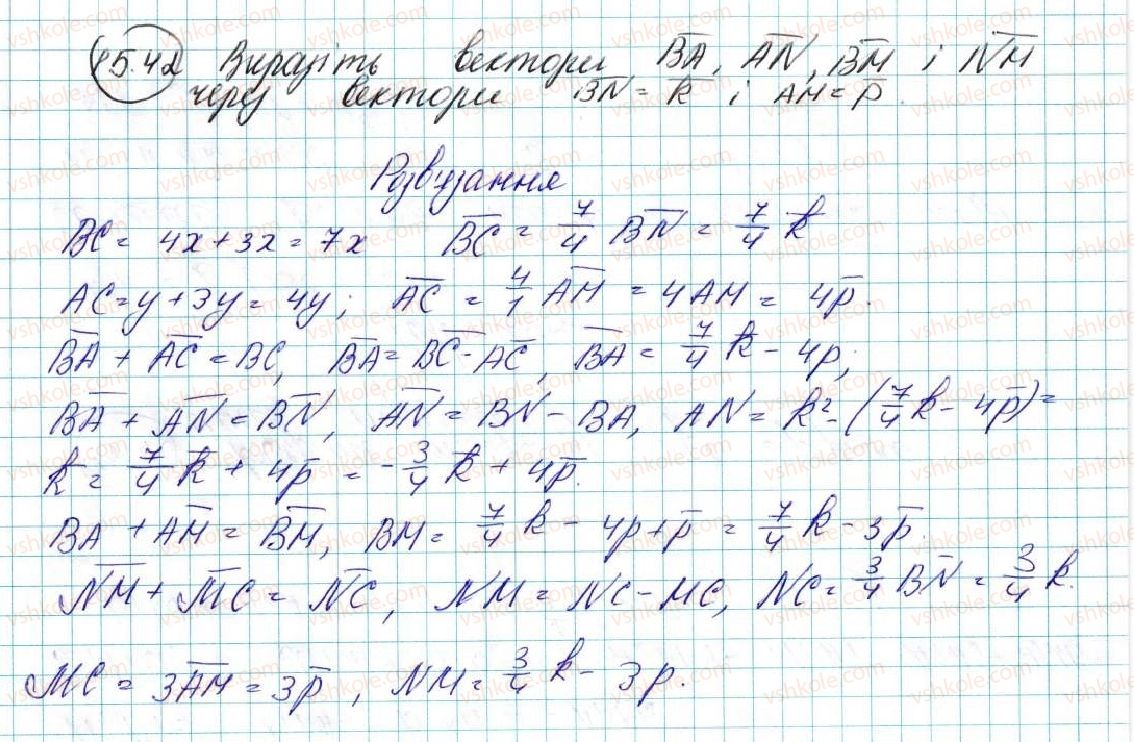 15.42 Виразіть вектори B̅A̅, A̅N̅, B̅M̅ і N̅M̅
через вектори B̅N̅ = k̅ і AM = p̅.
Розв'язання
BC = 4x + 3x = 7x B̅C̅ = 7/4 B̅N̅ = 7/4 k̅
AC = y + 3y = 4y; A̅C̅ = 4/1 A̅M̅ = 4AM = 4p̅.
B̅A̅ + A̅C̅ = BC, B̅A̅ = B̅C̅ - A̅C̅, B̅A̅ = 7/4 k̅ - 4p;
B̅A̅ + A̅N̅ = B̅N̅, A̅N̅ = BN - BA, AN = k - (7/4 k - 4p̅) =
k̅ = 7/4 k̅ + 4p̅ = -3/4 k̅ + 4p̅.
BA + A̅M̅ = B̅M̅, BM = 7/4 k - 4p + p̅ = 7/4 k - 3p̅.
N̅M̅ + M̅C̅ = N̅C̅, NM = NC - MC, NC = 3/4 B̅N̅ = 3/4 k.
MC = 3A̅M̅ = 3p̅, NM = 3/4 k - 3p.